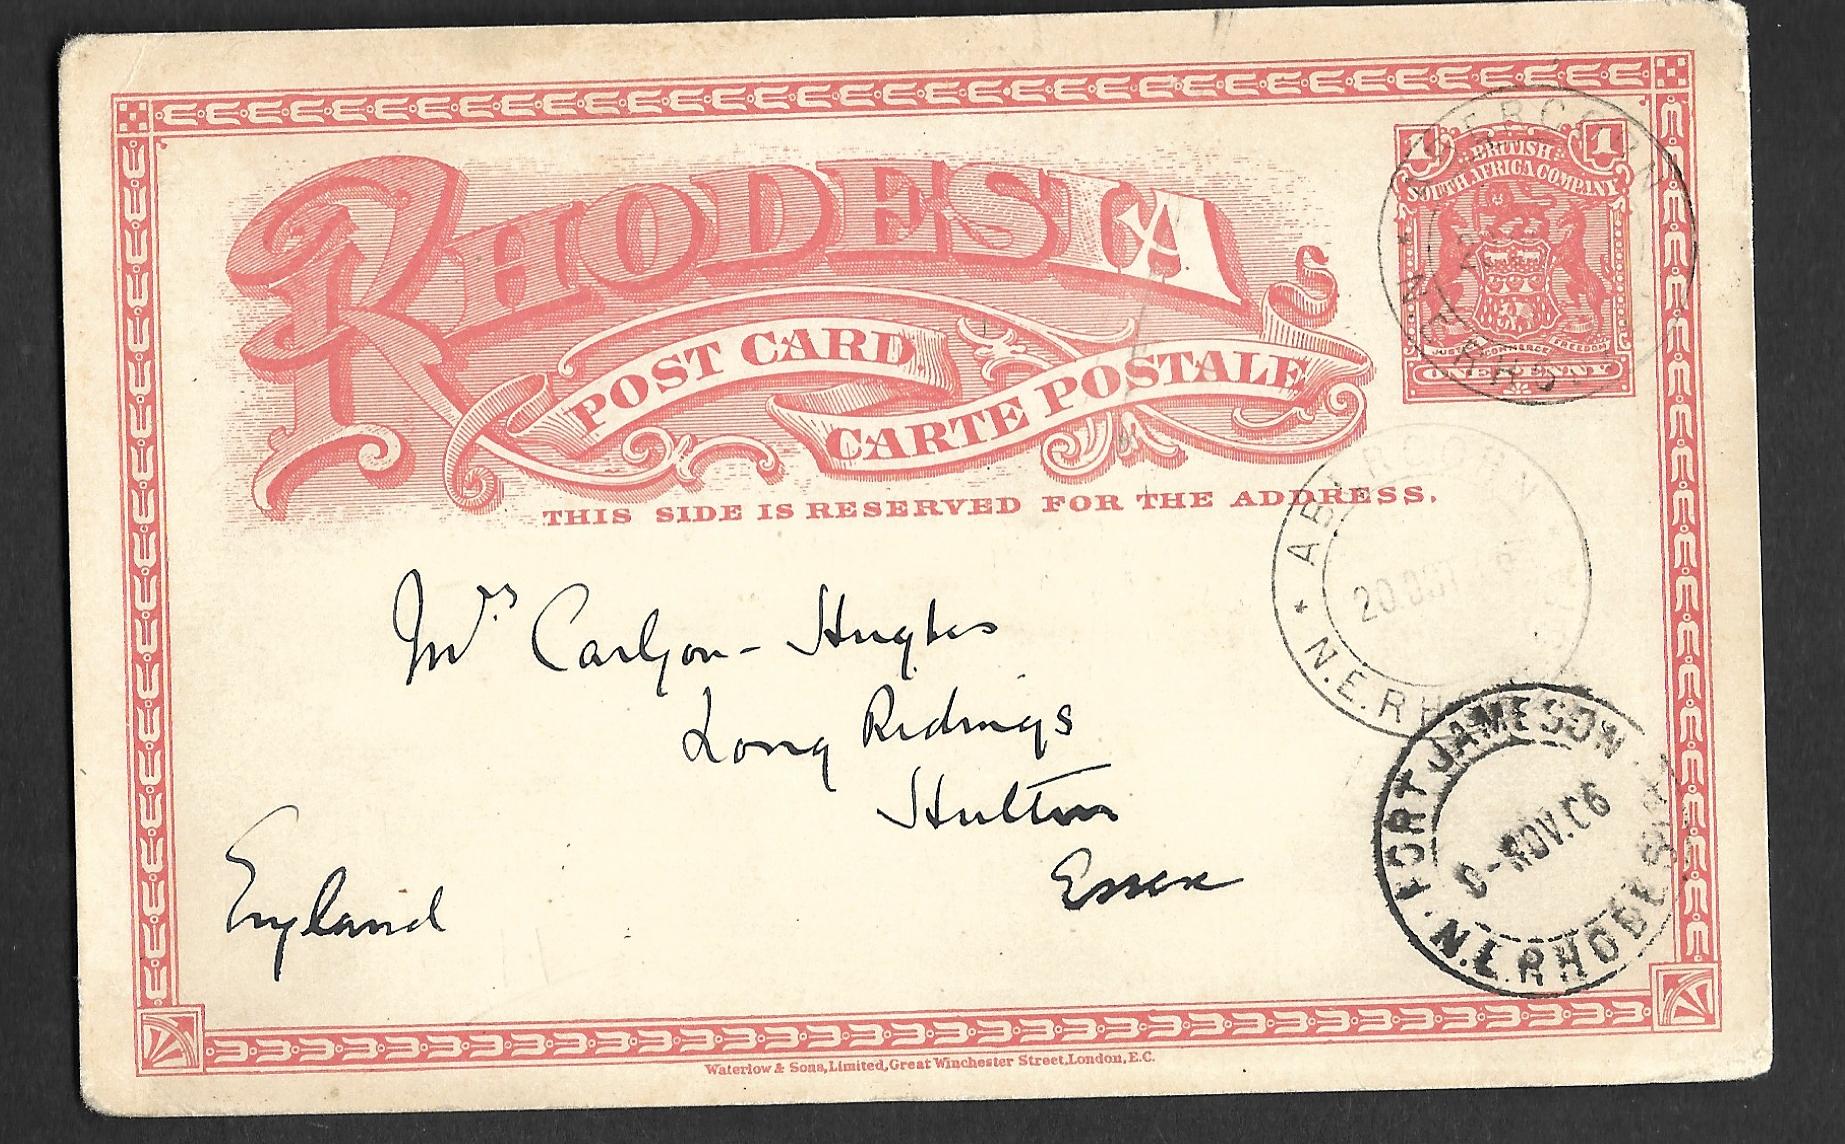 RHODESIA
POST CARD
CARTE POSTALE
THIS SIDE IS RESERVED FOR THE ADDRESS.
1 1
BRITISH
SOUTH AFRICA COMPANY
JUSTICE COMMERCE FREEDOM
ONE PENNY
ABERCORN
20.OCT
N.E.RHODESIA
FORT JAMESON
NOV.06
N.E.RHODESIA
Mrs Carlyon-Hughes
Long Ridings
Hutton
Essex
England
Waterlow & Sons, Limited, Great Winchester Street, London, E.C.